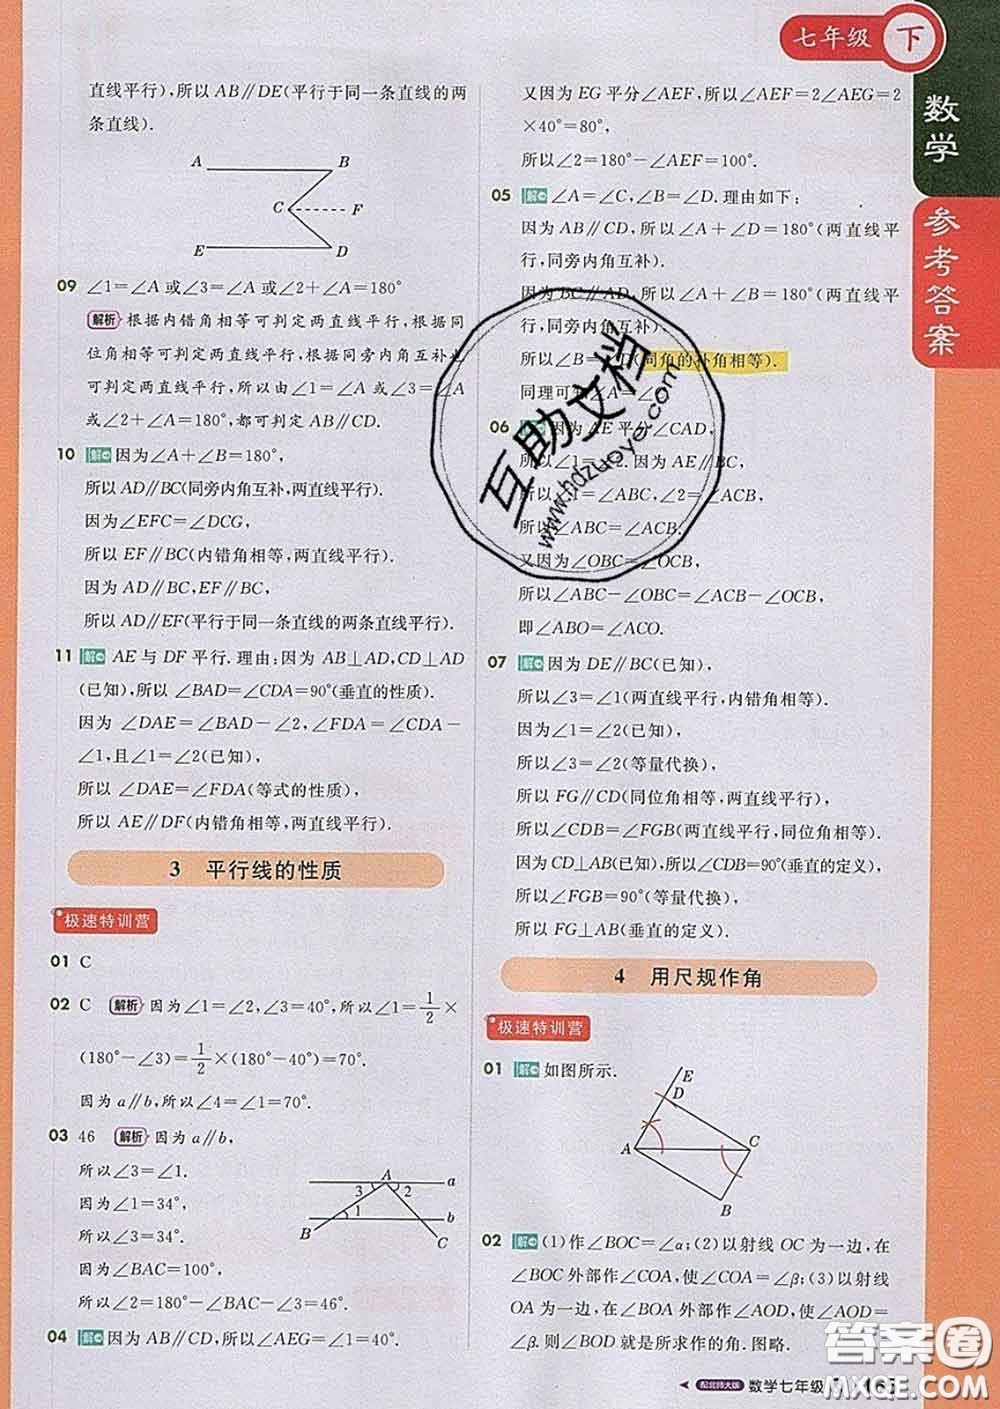 七年级 下
数学
参考答案
直线平行),所以 AB∥DE(平行于同一条直线的两
条直线).
A B
C F
E D
09 ∠1=∠A 或∠3=∠A 或∠2+∠A=180°
解析 根据内错角相等可判定两直线平行,根据同
位角相等可判定两直线平行,根据同旁内角互补
可判定两直线平行.所以由∠1=∠A 或∠3=∠A
或∠2+∠A=180°,都可判定 AB∥CD.
10 解 因为∠A+∠B=180°,
所以 AD∥BC(同旁内角互补,两直线平行).
因为∠EFC=∠DCG,
所以 EF∥BC(内错角相等,两直线平行).
因为 AD∥BC,EF∥BC,
所以 AD∥EF(平行于同一条直线的两条直线平行).
11 解 AE 与 DF 平行.理由:因为 AB⊥AD,CD⊥AD
(已知),所以∠BAD=∠CDA=90°(垂直的性质).
因为 ∠DAE=∠BAD-∠2,∠FDA=∠CDA-
∠1,且∠1=∠2(已知),
所以 ∠DAE=∠FDA(等式的性质),
所以 AE∥DF(内错角相等,两直线平行).
3 平行线的性质
极速特训营
01 C
02 C 解析 因为∠1=∠2,∠3=40°,所以∠1=1/2×
(180°-∠3)=1/2×(180°-40°)=70°.
因为 a∥b,所以∠4=∠1=70°.
03 46 解析 因为 a∥b,
所以∠3=∠1.
因为∠1=34°,
所以∠3=34°.
因为∠BAC=100°,
所以∠2=180°-∠BAC-∠3=46°.
A a
3 2
1 b
B C
04 解 因为 AB∥CD,所以∠AEG=∠1=40°.
又因为 EG 平分∠AEF,所以∠AEF=2∠AEG=2
×40°=80°,
所以∠2=180°-∠AEF=100°.
05 解 ∠A=∠C,∠B=∠D.理由如下:
因为 AB∥CD,所以∠A+∠D=180°(两直线平
行,同旁内角互补).
因为 BC∥AD,所以∠A+∠B=180°(两直线平
行,同旁内角互补).
所以∠B=∠D(同角的补角相等).
同理可 ∠A=∠
06 因为 AE 平分∠CAD,
所以∠1= 2.因为 AE∥BC,
所以 1=∠ABC,∠2=∠ACB,
所以∠ABC=∠ACB.
又因为∠OBC=∠OCB,
所以∠ABC-∠OBC=∠ACB-∠OCB,
即∠ABO=∠ACO.
07 解 因为 DE∥BC(已知),
所以∠3=∠1(两直线平行,内错角相等).
因为∠1=∠2(已知),
所以∠3=∠2(等量代换),
所以 FG∥CD(同位角相等,两直线平行).
所以∠CDB=∠FGB(两直线平行,同位角相等).
因为 CD⊥AB(已知),所以∠CDB=90°(垂直的定义),
所以∠FGB=90°(等量代换),
所以 FG⊥AB(垂直的定义).
4 用尺规作角
极速特训营
01 解 如图所示.
E
D
A C
B
02 解 (1)作∠BOC=∠α;(2)以射线 OC 为一边,在
∠BOC 外部作∠COA,使∠COA=∠β;(3)以射线
OA 为一边,在∠BOA 外部作∠AOD,使∠AOD=
∠β.则∠BOD 就是所求作的角.图略.
互助文档
www.hdzuoye.com
答案圈
配北师大版 数学七年级